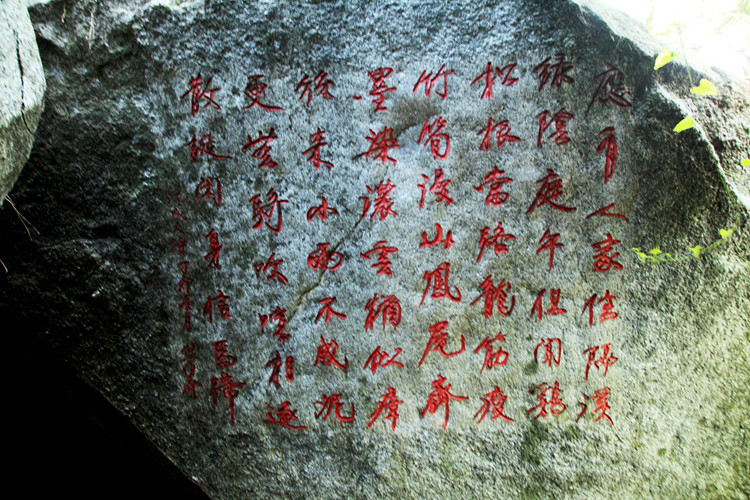 應有人家住隔溪
綠陰庭午但聞鷄
松根當路龍筋瘦
竹筍漫山鳳尾齊
墨染濃雲稠似瘴
後來小雨不成泥
更無騎吹喧相逐
散誕閒身信馬蹄